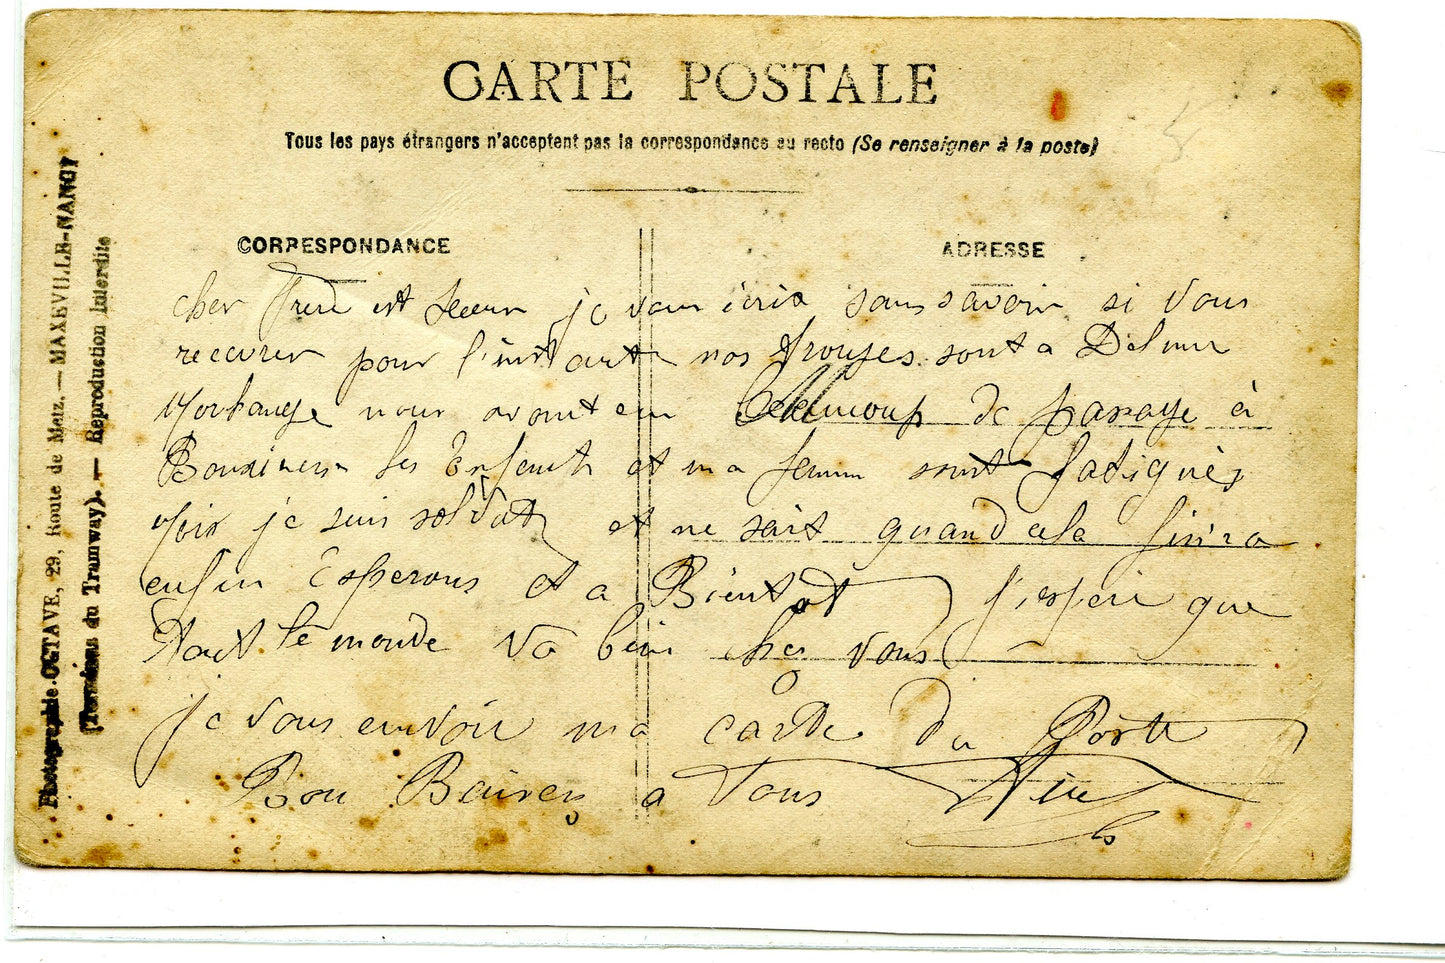 CARTE POSTALE
Tous les pays étrangers n'acceptent pas la correspondance au recto (Se renseigner à la poste)
CORRESPONDANCE
ADRESSE
cher frere et Seeur je vous icris sans savoir si vous
recever pour l'instant nos troupes sont a Delme
Morhange nous avont eu Beaucoup de passage à
Bouxieres les Enfents et ma femme sont fatigués
Moi je suis soldat et ne sait quand cela finira
enfin Esperons et a Bientot j'esperre que
tout le monde va bien ches vous
je vous envoie ma carte du Porte
Bon Baisers a vous
Photographie OCTAVE, 29, Route de Metz. — MAXEVILLE-NANCY
(Terminus du Tramway). — Reproduction Interdite